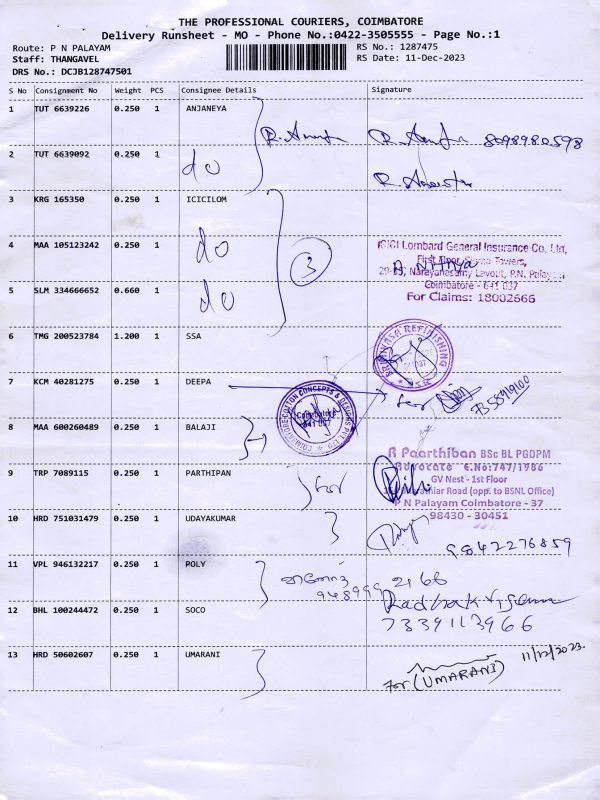 THE PROFESSIONAL COURIERS, COIMBATORE
Delivery Runsheet - MO - Phone No.:0422-3505555 - Page No.:1
Route: P N PALAYAM
RS No.: 1287475
Staff: THANGAVEL
RS Date: 11-Dec-2023
DRS No.: DCJB128747501
S No Consignment No Weight PCS Consignee Details Signature
1 TUT 6639226 0.250 1 ANJANEYA
8098980598
2 TUT 6639092 0.250 1 do
3 KRG 165350 0.250 1 ICICILOM
4 MAA 105123242 0.250 1 do
3
ICICI Lombard General Insurance Co. Ltd,
First Floor, Towers,
Narayanasamy Layout, P.N. Palayam
Coimbatore - 641 037
For Claims: 18002666
5 SLM 334666652 0.660 1 do
6 TMG 200523784 1.200 1 SSA
REFINISHING
7 KCM 40281275 0.250 1 DEEPA
for
CONCEPTS &
Coimbatore
641 037
8 MAA 600260489 0.250 1 BALAJI
R Paarthiban BSc BL PGDPM
Advocate E.No:747/1986
GV Nest - 1st Floor
Road (opp. to BSNL Office)
P N Palayam Coimbatore - 37
98430 - 30451
9 TRP 7089115 0.250 1 PARTHIPAN
for
10 HRD 751031479 0.250 1 UDAYAKUMAR
9842276859
11 VPL 946132217 0.250 1 POLY
12 BHL 100244472 0.250 1 SOCO
7339113966
13 HRD 50602607 0.250 1 UMARANI
11/12/2023.
For (UMARANI)